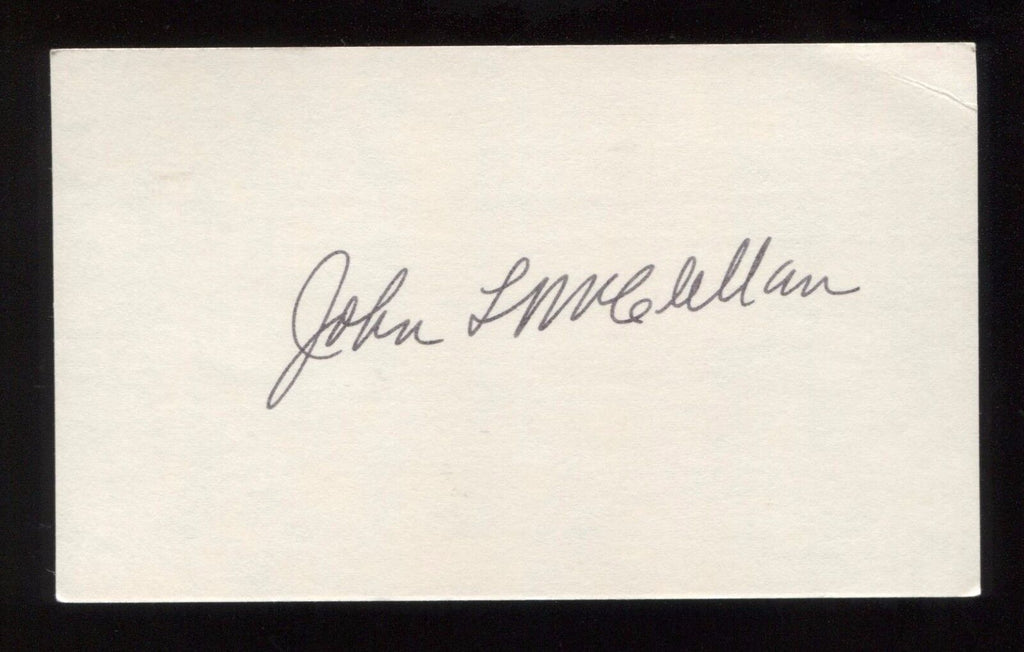 John L McClellan